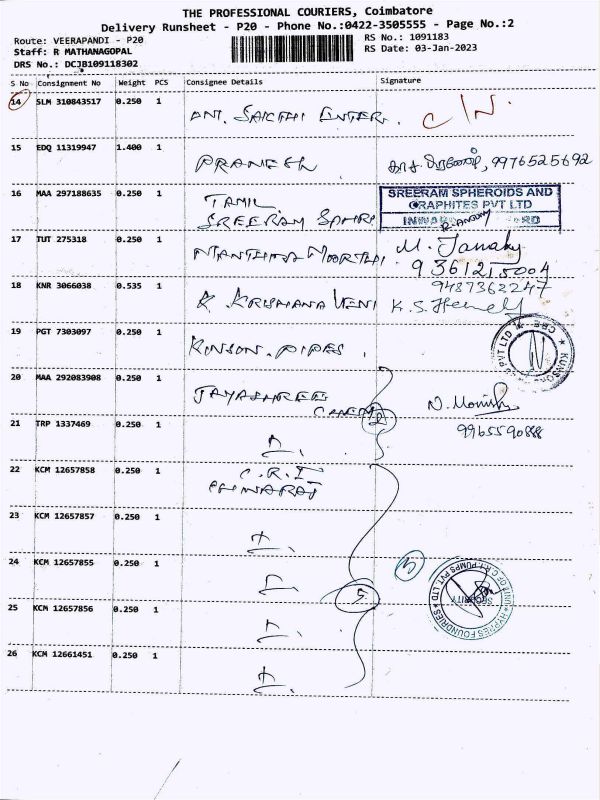 THE PROFESSIONAL COURIERS, Coimbatore
Delivery Runsheet - P20 - Phone No.:0422-3505555 - Page No.:2
Route: VEERAPANDI - P20
RS No.: 1091183
Staff: R MATHANAGOPAL
RS Date: 03-Jan-2023
DRS No.: DCJB109118302
S No Consignment No Weight PCS Consignee Details Signature
14 SLM 310843517 0.250 1 SAKTHI ENTER. C/N.
15 EDQ 11319947 1.400 1 PRANESH 9976525692
16 MAA 297188635 0.250 1 TAMIL
SREERAM
SREERAM SPHEROIDS AND
GRAPHITES PVT LTD
17 TUT 275318 0.250 1 MOORTHI M. Janaky
9361215004
18 KNR 3066038 0.535 1 K. KRISHANA VENI 9487362247
K.S.
19 PGT 7303097 0.250 1 KINSON. PIPES.
20 MAA 292083908 0.250 1 JAYASHREE
CHEM 2 N. Monish
21 TRP 1337469 0.250 1 9965590888
22 KCM 12657858 0.250 1 C.R.I
CHINARAJ
23 KCM 12657857 0.250 1
24 KCM 12657855 0.250 1 5
25 KCM 12657856 0.250 1 5
HYPRES FOUNDRIES
UNIT OF C.R.I. PUMPS PVT. LTD
SECURITY
26 KCM 12661451 0.250 1